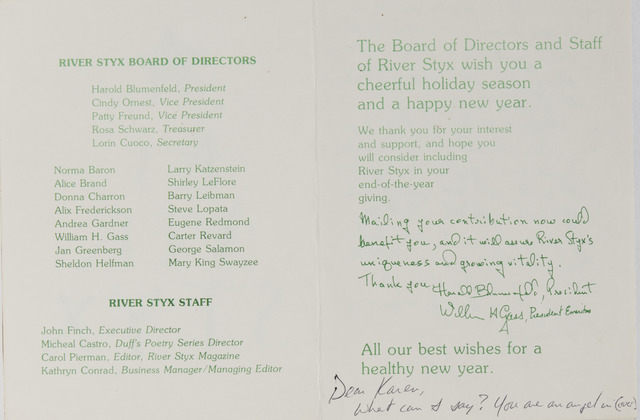 RIVER STYX BOARD OF DIRECTORS
Harold Blumenfeld, President
Cindy Ornest, Vice President
Patty Freund, Vice President
Rosa Schwarz, Treasurer
Lorin Cuoco, Secretary
Norma Baron
Alice Brand
Donna Charron
Alix Frederickson
Andrea Gardner
William H. Gass
Jan Greenberg
Sheldon Helfman
Larry Katzenstein
Shirley LeFlore
Barry Leibman
Steve Lopata
Eugene Redmond
Carter Revard
George Salamon
Mary King Swayzee
RIVER STYX STAFF
John Finch, Executive Director
Micheal Castro, Duff's Poetry Series Director
Carol Pierman, Editor, River Styx Magazine
Kathryn Conrad, Business Manager/Managing Editor
The Board of Directors and Staff
of River Styx wish you a
cheerful holiday season
and a happy new year.
We thank you for your interest
and support, and hope you
will consider including
River Styx in your
end-of-the-year
giving.
Mailing your contribution now could
benefit you, and it will assure River Styx's
uniqueness and growing vitality.
Thank you Harold Blumenfeld, President
William H Gass, President Emeritus
All our best wishes for a
healthy new year.
Dear Karen,
What can I say? You are an angel in (over)